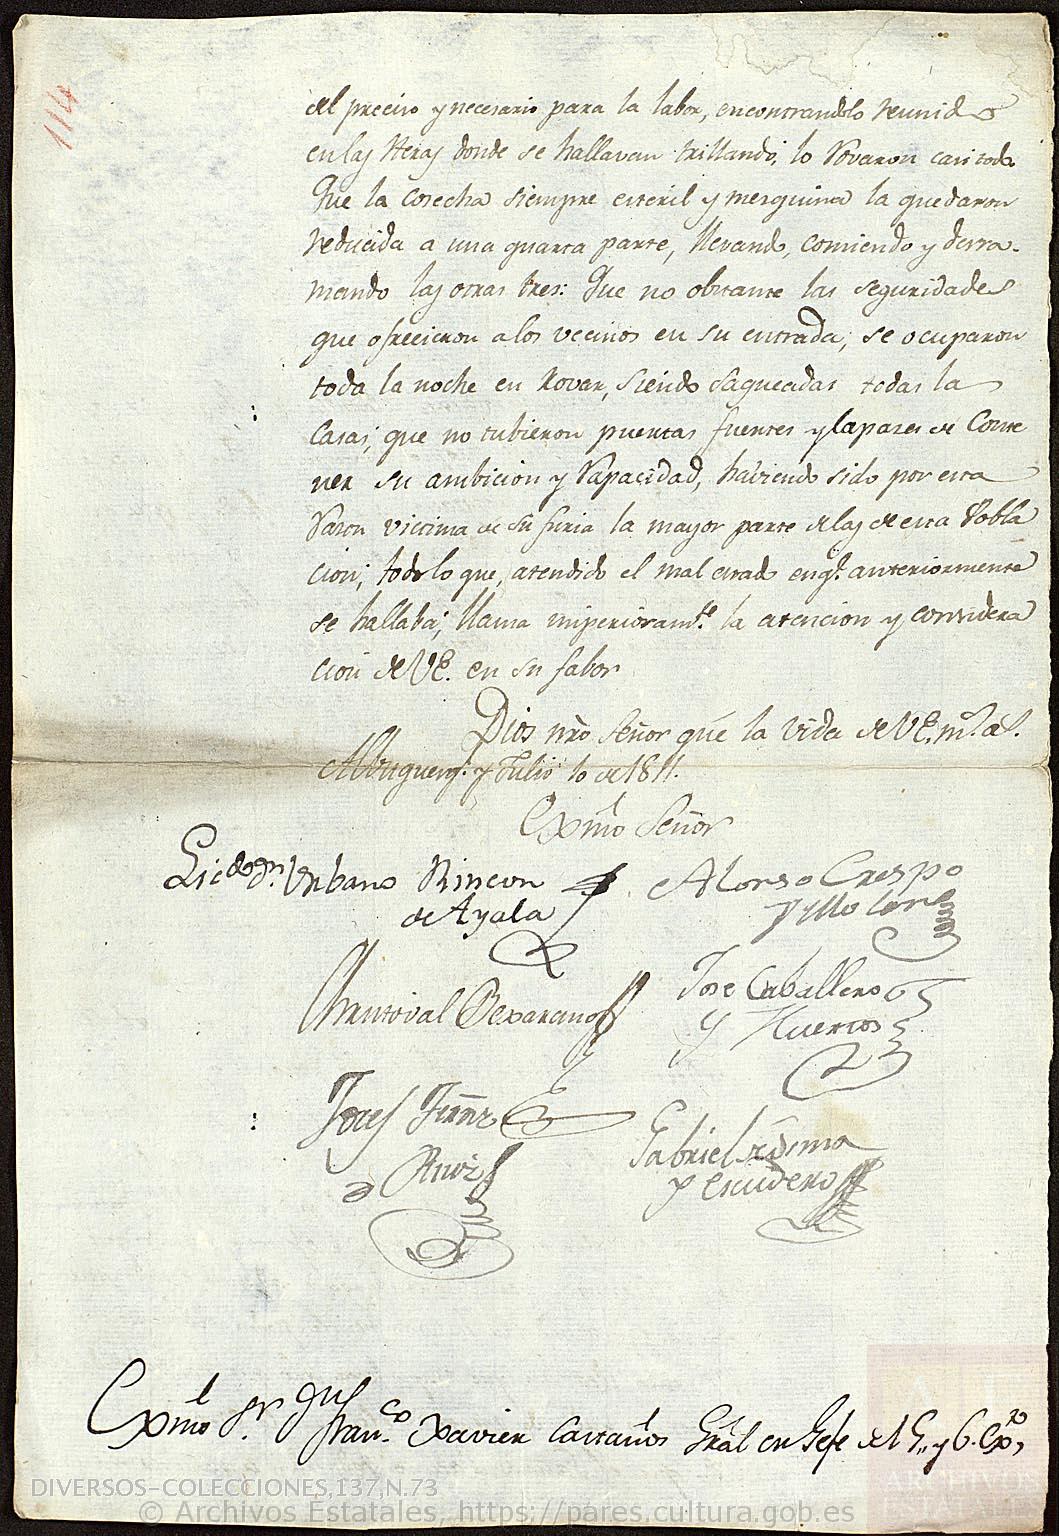 114
del preciso y necesario para la labor, encontrandolo reunido
en las Heras donde se hallavan trillando, lo Rovaron casi todo
Que la cosecha siempre esteril y mesquina la quedaron
reducida a una quarta parte, llevando, comiendo y derra-
mando las otras tres: Que no obstante las seguridades
que ofrecieron a los vecinos en su entrada, se ocuparon
toda la noche en Rovar, siendo saqueadas todas la
Casas, que no tubieron puertas fuertes y capaces de Conte
ner su ambicion y Rapacidad, haviendo sido por esta
Razon victima de su furia la mayor parte de las de esta Pobla
cion; todo lo que, atendido el mal estado en q.e anteriormente
se hallaba, llama imperiosam.te la atencion y considera
cion de VE. en su fabor
Dios nrõ Señor que la vida de VE. m.s a.s
Alburquerq.e y Julio 10 de 1811.
Exmõ Señor
Licdo dn. Urbano Rincon
de Ayala
Alonso Crespo
Christoval Bexarano
Jose Caballero
y Huertos
Josef Fernnz
Ruiz
Gabriel
y Escudero
Exmõ Sr. Dn
Fran.co Xavier Castaños Grãl en Gefe del 5,, y 6. Exto,
DIVERSOS-COLECCIONES,137,N.73
© Archivos Estatales, https://pares.cultura.gob.es
ARCHIVOS
ESTATALES